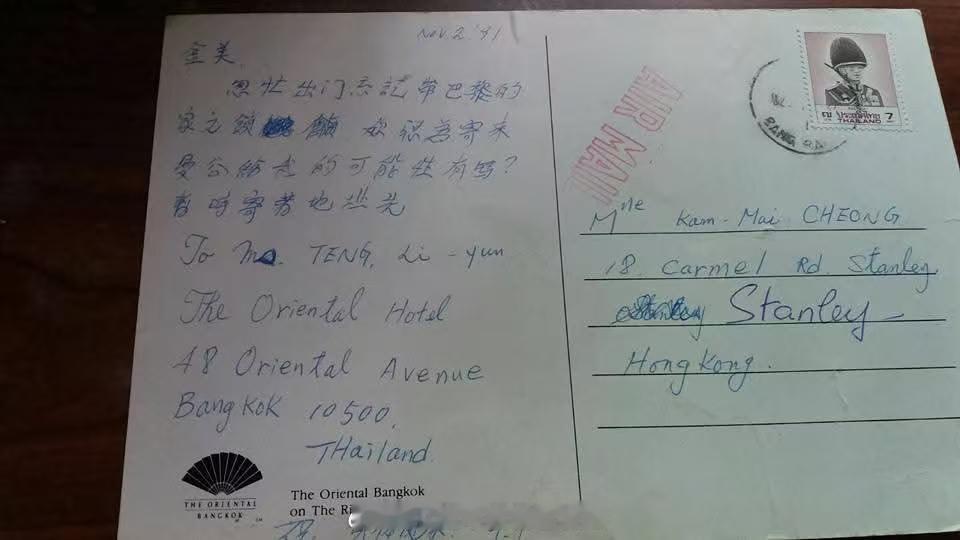 Nov. 2. '91
金美,
忽忙出门忘記带巴黎的
家之 寄来
曼谷給我的可能性有嗎?
暫時寄 地址先
To TENG, Li-yun
The Oriental Hotel
48 Oriental Avenue
Bangkok 10500,
THailand.
THE ORIENTAL
BANGKOK
The Oriental Bangkok
on The
AIR MAIL
7
ประเทศไทย
THAILAND
Mlle Kam-Mai CHEONG
18. Carmel Rd. Stanley
Stanley
Hong Kong.